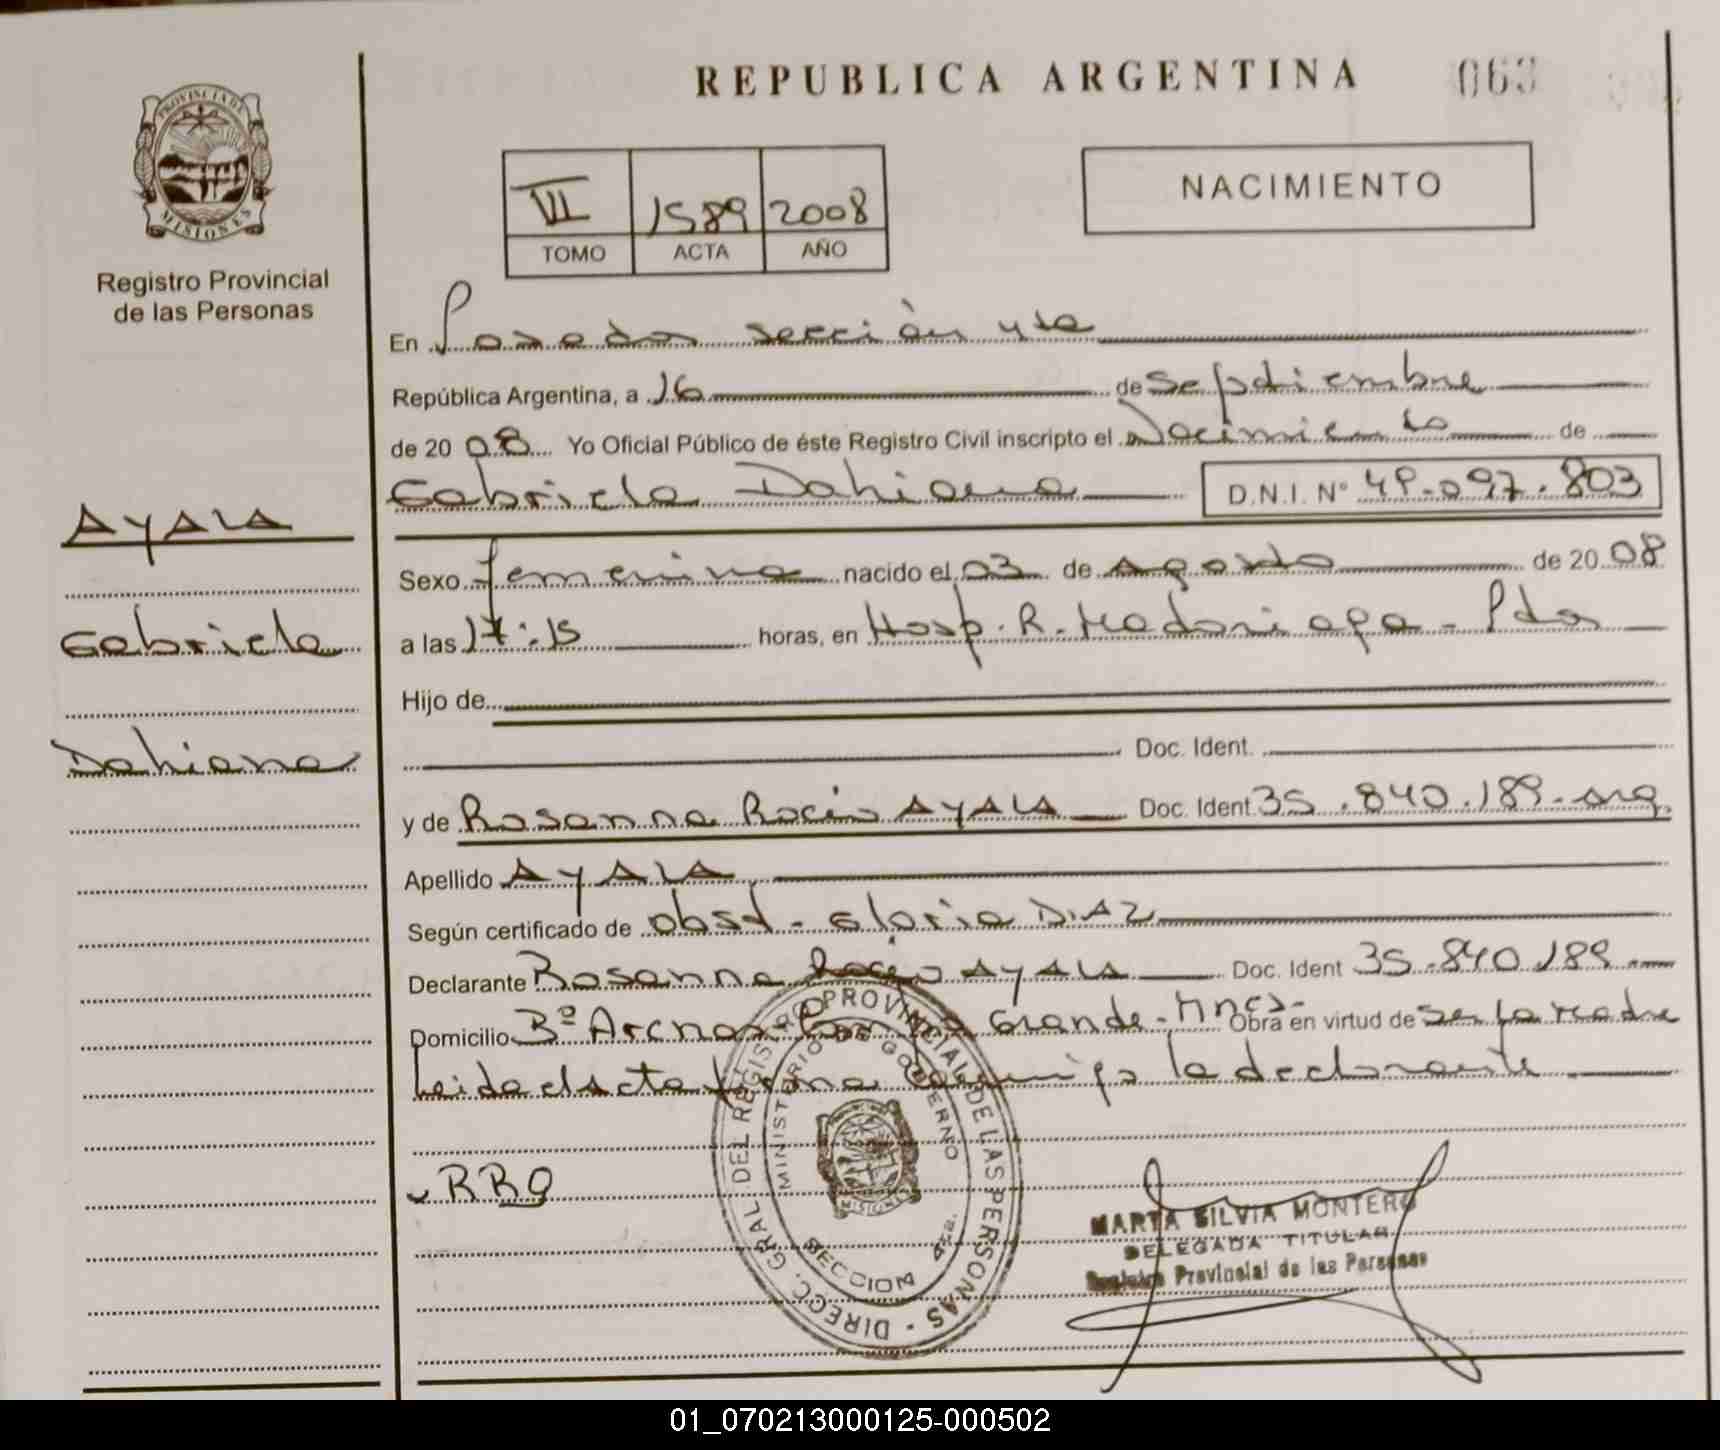 REPUBLICA ARGENTINA 063
PROVINCIA DE
MISIONES
Registro Provincial
de las Personas
VII 1589 2008
TOMO ACTA AÑO
NACIMIENTO
En Posadas sección 4ta
República Argentina, a 16 de septiembre
de 2008 Yo Oficial Público de éste Registro Civil inscripto el Nacimiento de
Gabriela Dahiana D.N.I. N° 49.097.803
AYALA
Gabriela
Dahiana
Sexo femenino nacido el 03 de Agosto de 2008
a las 17:15 horas, en Hosp. R. Madariaga - Pdas
Hijo de
Doc. Ident.
y de Rosanna Rocío AYALA Doc. Ident. 35.840.189-arg.
Apellido AYALA
Según certificado de obst. Gloria DIAZ
Declarante Rosanna Rocío AYALA Doc. Ident 35.840.189
Domicilio Bº Grande - Mnes- Obra en virtud de ser la madre
Leida el acta firma conmigo la declarante
RRO
DIRECC. GRAL. DEL REGISTRO PROVINCIAL DE LAS PERSONAS
MINISTERIO DE GOBIERNO
MISIONES
SECCION 4ta.
MARTA SILVIA MONTERO
DELEGADA TITULAR
Registro Provincial de las Personas
01_070213000125-000502